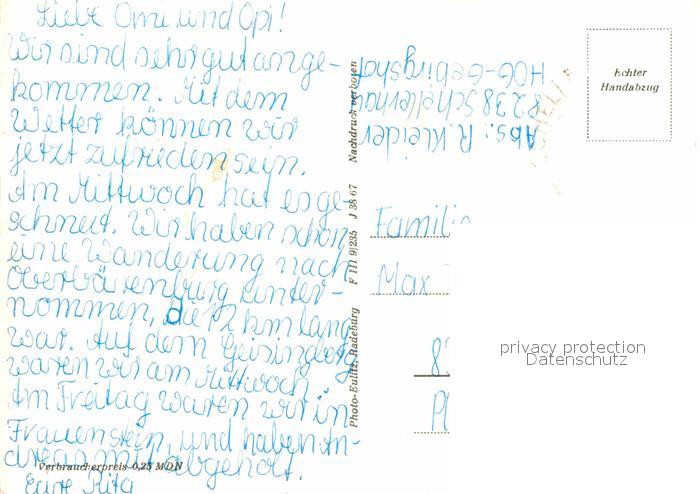 Liebe Omi und Opi!
Wir sind sehr gut ange-
kommen. Mit dem
Wetter können wir
jetzt zufrieden sein.
Am Mittwoch hat es ge-
schneit. Wir haben schon
eine Wanderung nach
Oberbärenburg unter-
nommen, die 12 km lang
war. Auf dem Geisingberg
waren wir am Mittwoch.
Am Freitag waren wir in
Frauenstein, und haben An-
dreas mit abgeholt.
Eure Rita
Verbraucherpreis 0,25 MDN
Photo-Eulitz, Radeburg F III 9/235 J 38 67 Nachdruck verboten
Abs.: R. Kleider
8238 Schellerhau
HOG-Gebirgshof
Echter
Handabzug
Famili
Max
8
Pl
privacy protection
Datenschutz